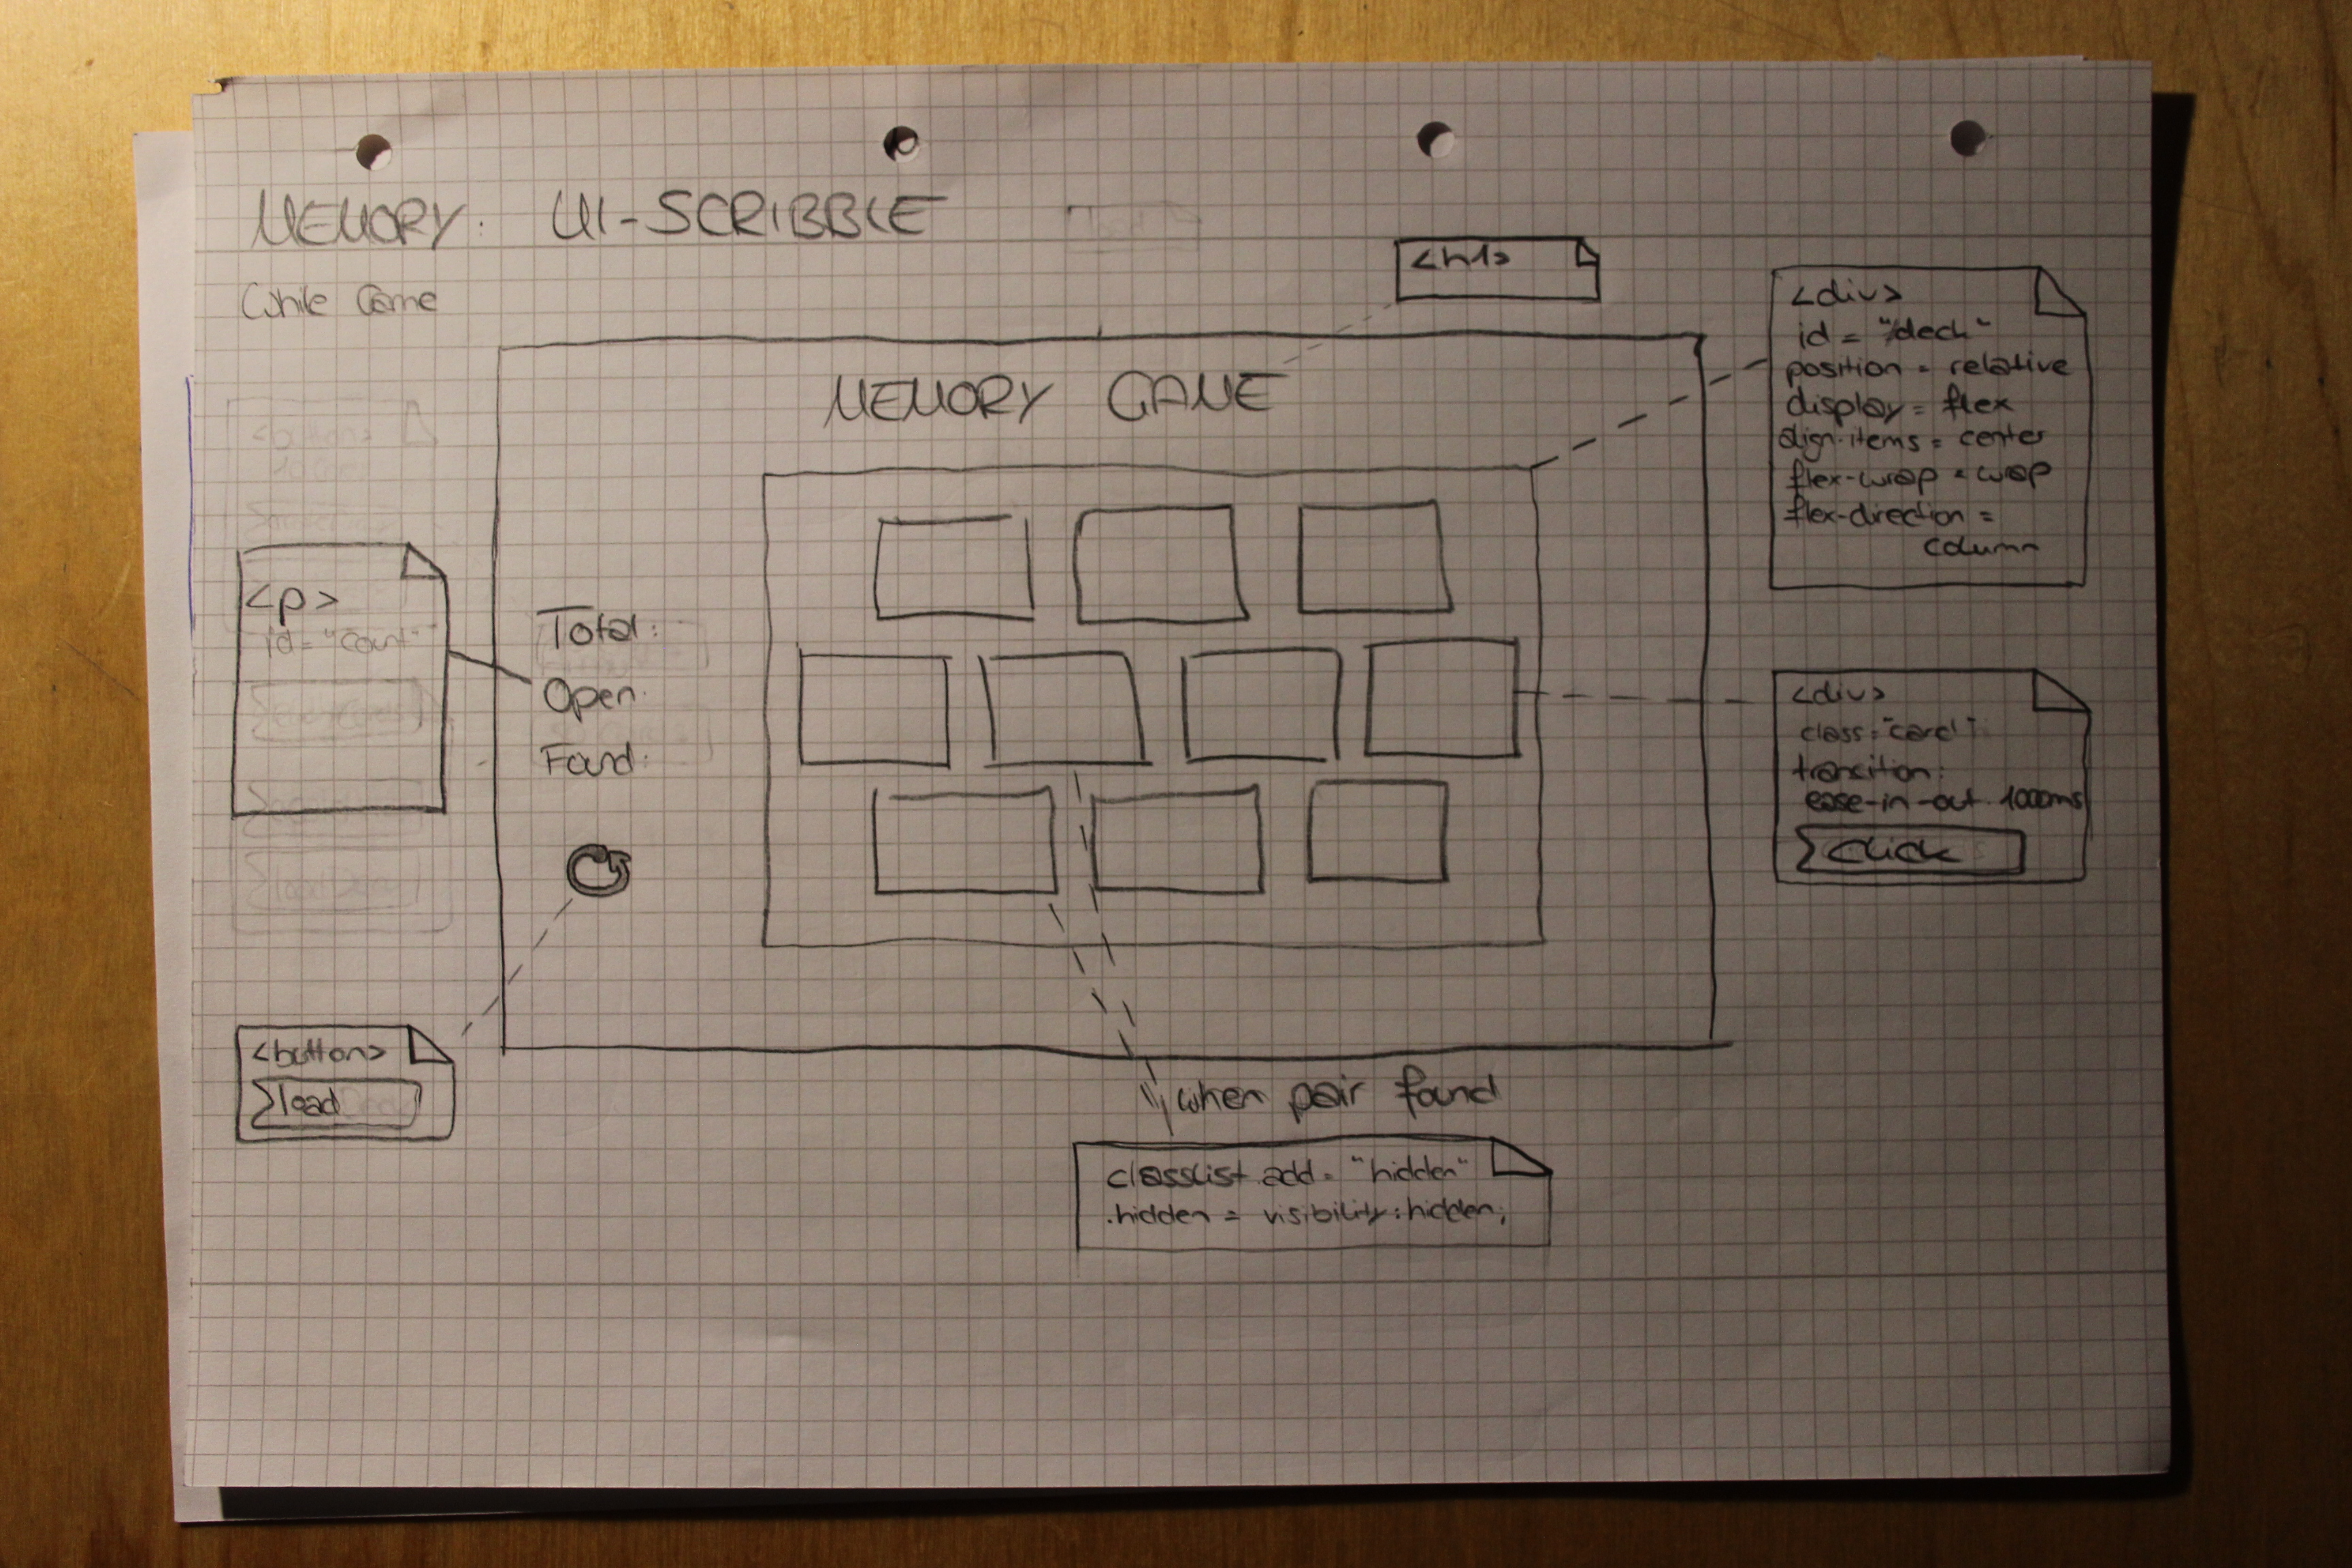 MEMORY: UI-SCRIBBLE
While Game
<h1>
MEMORY GAME
<div>
id = "deck"
position = relative
display = flex
align-items = center
flex-wrap = wrap
flex-direction =
column
<p>
id = "count"
Total:
Open:
Found:
<div>
class = "card"
transition:
ease-in-out 1000ms
click
<button>
load
when pair found
classList.add = "hidden"
.hidden = visibility: hidden;